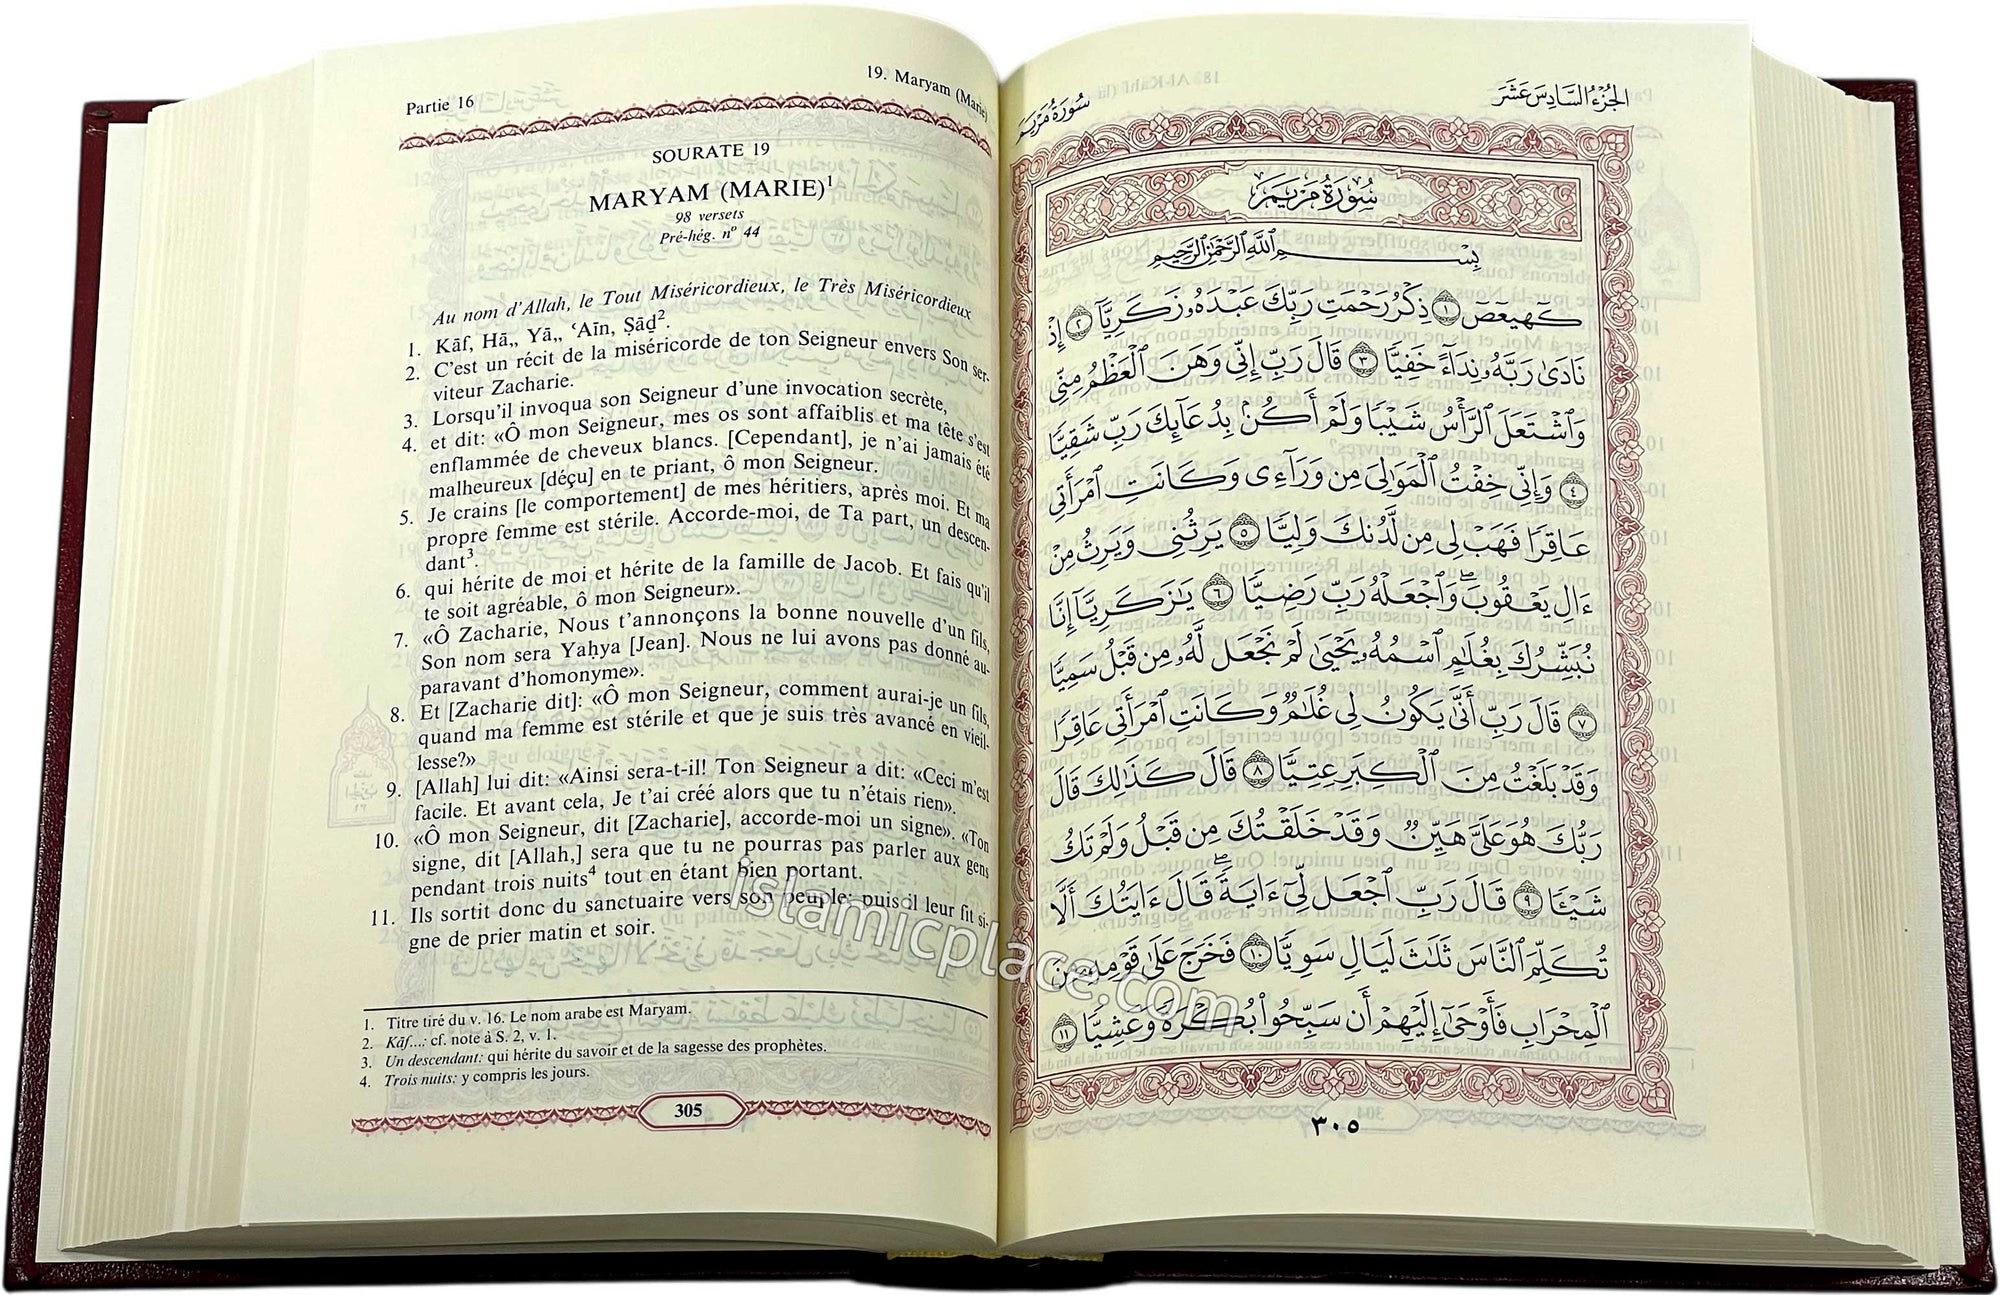 Partie 16
19. Maryam (Marie)
SOURATE 19
MARYAM (MARIE)¹
98 versets
Pré-hég. nº 44
Au nom d'Allah, le Tout Miséricordieux, le Très Miséricordieux
1. Kāf, Hā,, Yā,, ‘Aīn, Ṣād².
2. C'est un récit de la miséricorde de ton Seigneur envers Son ser-
viteur Zacharie.
3. Lorsqu'il invoqua son Seigneur d'une invocation secrète,
4. et dit: «Ô mon Seigneur, mes os sont affaiblis et ma tête s'est
enflammée de cheveux blancs. [Cependant], je n'ai jamais été
malheureux [déçu] en te priant, ô mon Seigneur.
5. Je crains [le comportement] de mes héritiers, après moi. Et ma
propre femme est stérile. Accorde-moi, de Ta part, un descen-
dant³.
6. qui hérite de moi et hérite de la famille de Jacob. Et fais qu'il
te soit agréable, ô mon Seigneur».
7. «Ô Zacharie, Nous t'annonçons la bonne nouvelle d'un fils,
Son nom sera Yaḥya [Jean]. Nous ne lui avons pas donné au-
paravant d'homonyme».
8. Et [Zacharie dit]: «Ô mon Seigneur, comment aurai-je un fils,
quand ma femme est stérile et que je suis très avancé en vieil-
lesse?»
9. [Allah] lui dit: «Ainsi sera-t-il! Ton Seigneur a dit: «Ceci m'est
facile. Et avant cela, Je t'ai créé alors que tu n'étais rien».
10. «Ô mon Seigneur, dit [Zacharie], accorde-moi un signe». «Ton
signe, dit [Allah,] sera que tu ne pourras pas parler aux gens
pendant trois nuits⁴ tout en étant bien portant.
11. Ils sortit donc du sanctuaire vers son peuple; puis il leur fit si-
gne de prier matin et soir.
1. Titre tiré du v. 16. Le nom arabe est Maryam.
2. Kāf...: cf. note à S. 2, v. 1.
3. Un descendant: qui hérite du savoir et de la sagesse des prophètes.
4. Trois nuits: y compris les jours.
305
الجزء السادس عشر
سورة مريم
سُورَةُ مَرْيَمَ
بِسْمِ ٱللَّهِ ٱلرَّحْمَٰنِ ٱلرَّحِيمِ
كٓهيعٓصٓ ١ ذِكْرُ رَحْمَتِ رَبِّكَ عَبْدَهُۥ زَكَرِيَّآ ٢ إِذْ
نَادَىٰ رَبَّهُۥ نِدَآءً خَفِيًّا ٣ قَالَ رَبِّ إِنِّي وَهَنَ ٱلْعَظْمُ مِنِّي
وَٱشْتَعَلَ ٱلرَّأْسُ شَيْبًا وَلَمْ أَكُنۢ بِدُعَآئِكَ رَبِّ شَقِيًّا
٤ وَإِنِّي خِفْتُ ٱلْمَوَٰلِيَ مِن وَرَآءِي وَكَانَتِ ٱمْرَأَتِي
عَاقِرًا فَهَبْ لِي مِن لَّدُنكَ وَلِيًّا ٥ يَرِثُنِي وَيَرِثُ مِنْ
ءَالِ يَعْقُوبَ ۖ وَٱجْعَلْهُ رَبِّ رَضِيًّا ٦ يَٰزَكَرِيَّآ إِنَّا
نُبَشِّرُكَ بِغُلَٰمٍ ٱسْمُهُۥ يَحْيَىٰ لَمْ نَجْعَل لَّهُۥ مِن قَبْلُ سَمِيًّا
٧ قَالَ رَبِّ أَنَّىٰ يَكُونُ لِي غُلَٰمٌ وَكَانَتِ ٱمْرَأَتِي عَاقِرًا
وَقَدْ بَلَغْتُ مِنَ ٱلْكِبَرِ عِتِيًّا ٨ قَالَ كَذَٰلِكَ قَالَ
رَبُّكَ هُوَ عَلَيَّ هَيِّنٌ وَقَدْ خَلَقْتُكَ مِن قَبْلُ وَلَمْ تَكُ
شَيْـًٔا ٩ قَالَ رَبِّ ٱجْعَل لِّيٓ ءَايَةً ۚ قَالَ ءَايَتُكَ أَلَّا
تُكَلِّمَ ٱلنَّاسَ ثَلَٰثَ لَيَالٍ سَوِيًّا ١٠ فَخَرَجَ عَلَىٰ قَوْمِهِۦ مِنَ
ٱلْمِحْرَابِ فَأَوْحَىٰٓ إِلَيْهِمْ أَن سَبِّحُوا۟ بُكْرَةً وَعَشِيًّا ١١
٣٠٥
islamicplace.com